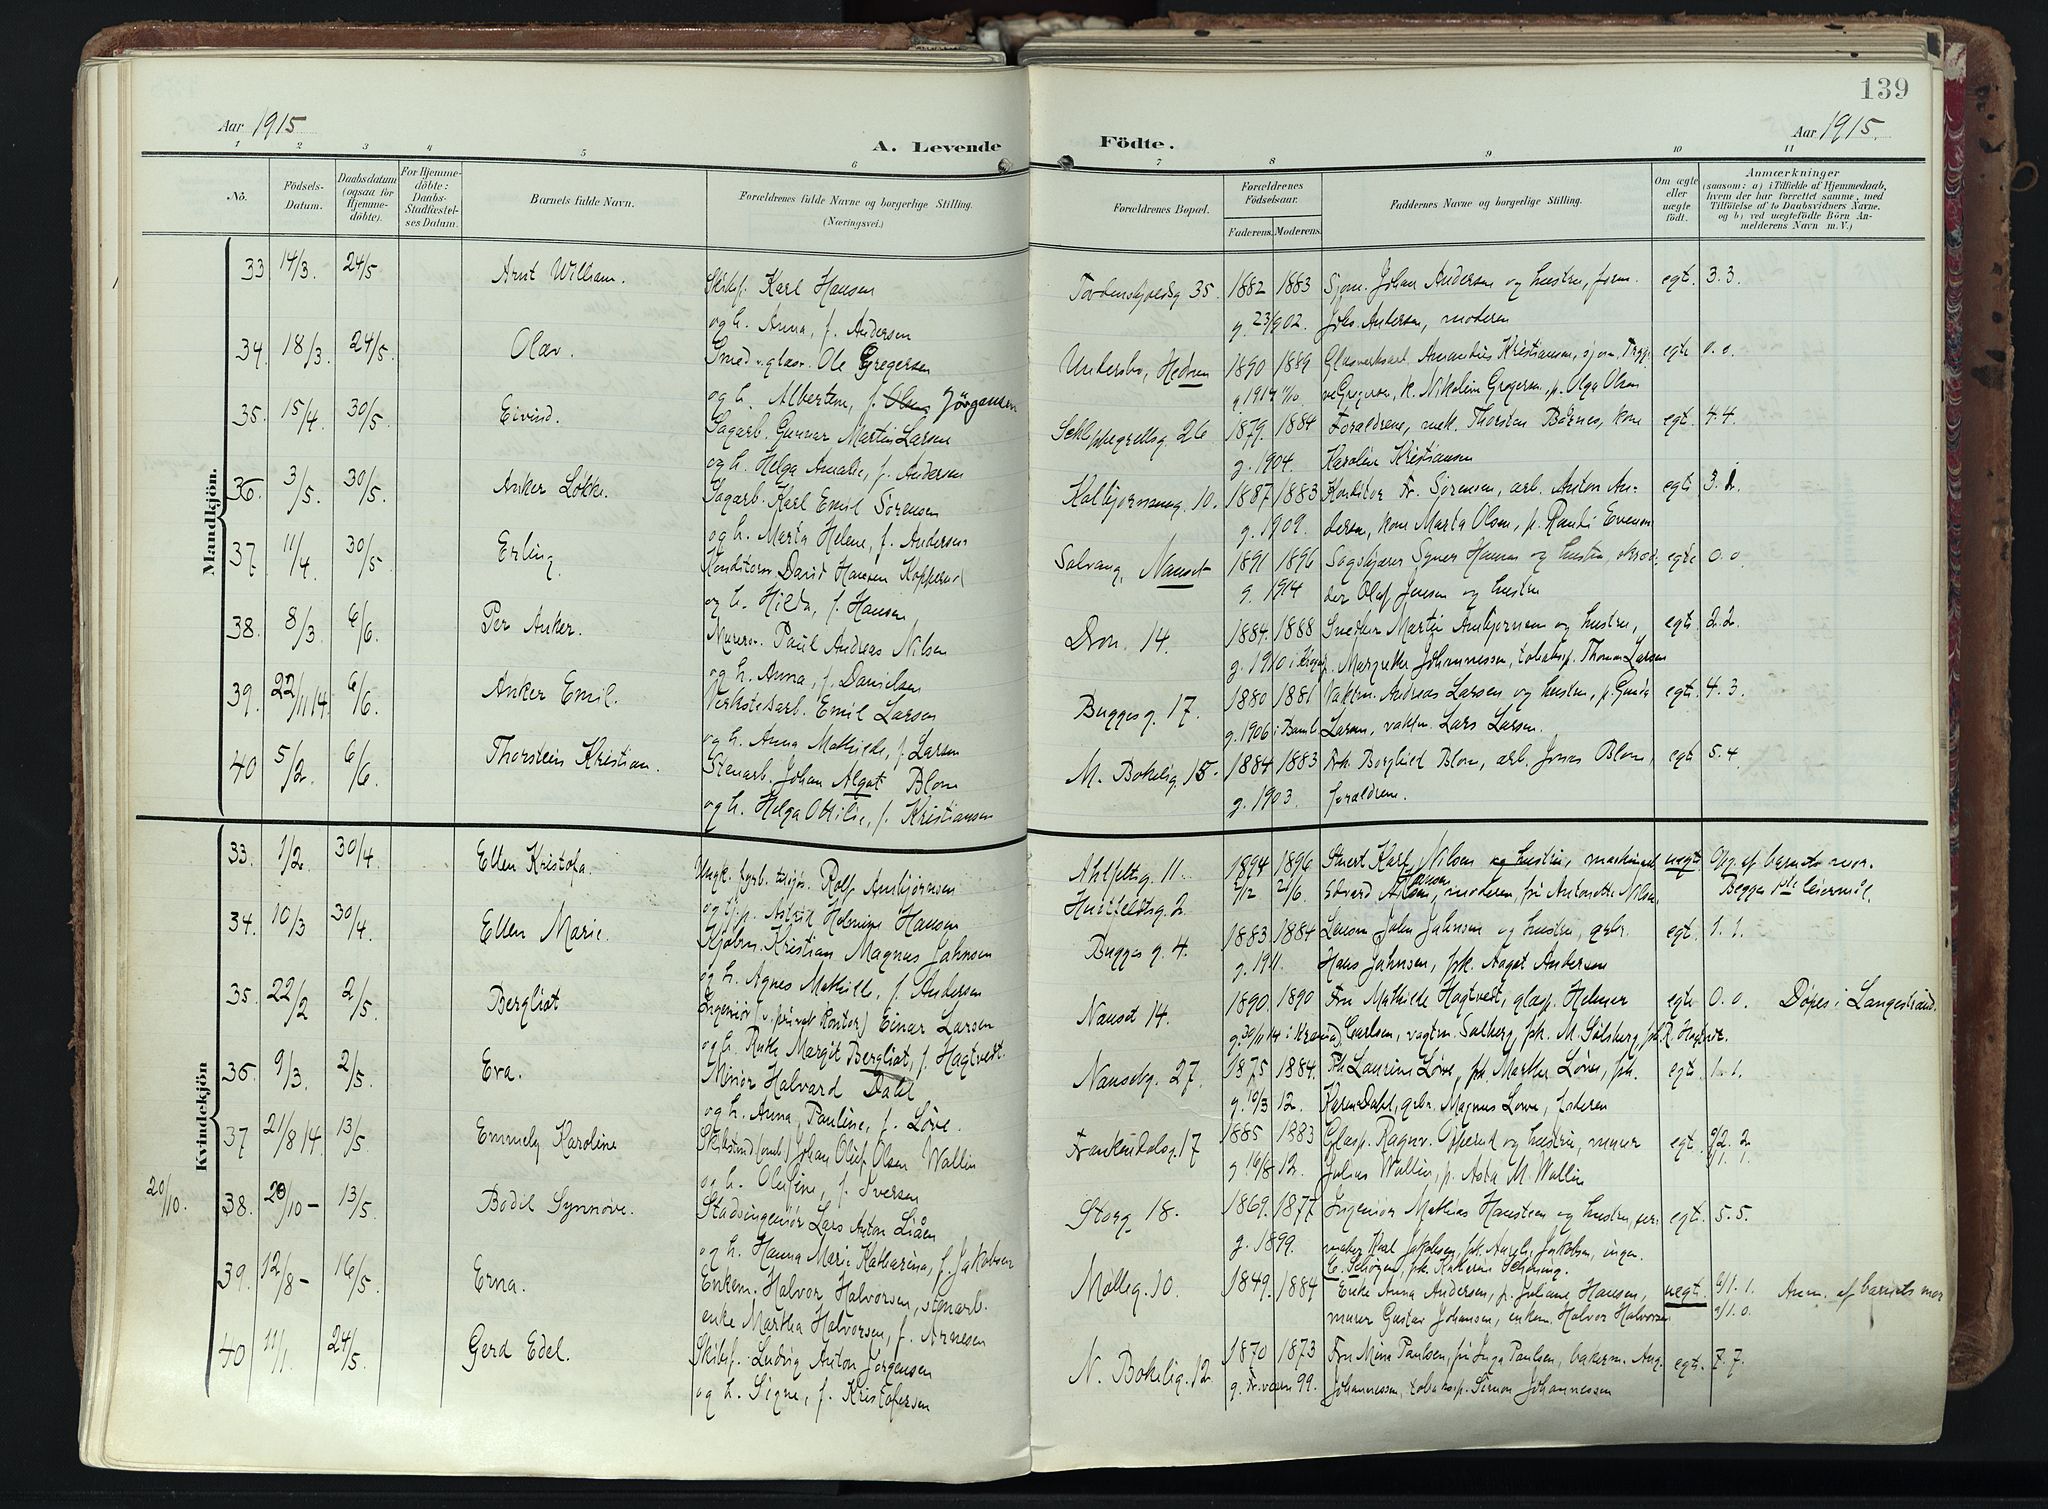 139
Aar 1915.
Aar 1915.
A. Levende Födte.
1 2 3 4 5 6 7 8 9 10 11
No.
Födsels-Datum.
Daabsdatum (ogsaa for Hjemmedöbte).
For Hjemmedöbte: Daabs-Stadfæstelses Datum.
Barnets fulde Navn.
Forældrenes fulde Navne og borgerlige Stilling. (Næringsvei.)
Forældrenes Bopæl.
Forældrenes Födselsaar.
Faderens. Moderens.
Faddernes Navne og borgerlige Stilling.
Om ægte eller uægte födt.
Anmærkninger
(saasom: a) i Tilfælde af Hjemmedaab, hvem der har forrettet samme, med Tilföielse af to Daabsvidners Navne, og b) ved uægtefödte Börn Anmelderens Navn m. V.)
Mandkjön.
33 14/3. 24/5 Arnt William. Skibsf. Karl Hansen Tordenskjoldsg 35. 1882 1883 Sjøm. Johan Andersen og hustru, egt. 3.3.
og h. Anna, f. Andersen g. 23/902. Johs. Andersen, moderen
34. 18/3. 24/5. Olav. Smed v. glasv. Ole Gregersen Undersbo, Hedrum 1890 1889 Glasverksarb. Amandus Kristiansen, sjøm. egte 0.0.
og h. Albertine, f. Olsen Jörgensen g. 1914 Gregersen, k. Nikoline Gregersen, p. Olga Olsen
35. 15/4. 30/5. Eivind. Sagarb. Gunnar Martin Larsen Schleppegrellsg. 26 1879. 1884 Forældrene, mek. Thorsten Børnes, kone egt. 4.4.
og h. Helga Amalie, f. Andersen g. 1904. Karoline Kristiansen
36. 3/5. 30/5. Anker Løkke. Sagarb. Karl Emil Sørensen Kolbjørnsensg. 10. 1887 1883 Konditor Fr. Sørensen, arb. Anton An- egt.
og h. Marta Helene, f. Andersen g. 1909. dersen, kone Marta Olsen, p. Randi Evensen
37. 11/4. 30/5 Erling. Konditorsv David Hansen Kopperud Solvang, Nanset 1891 1896 Hansen og hustru, skræd- egte 0.0.
og h. Hilda, f. Hansen g. 1914 der Olaf Jensen og hustru
38. 8/3. 6/6. Per Anker. Murersv. Paul Andreas Nilsen Dron. 14. 1884. 1888 Snedker Martin Ambjørnsen og hustru, egt. 2.2.
og h. Anna, f. Danielsen g. 1910 Margrethe Johannessen, Thomas Larsen
39. 22/11 14. 6/6. Anker Emil. Verkstedarb. Emil Larsen Bugges g. 17. 1880 1881 Vaktm. Andreas Larsen og hustru, egt. 4.3.
og h. Anna Mathilde, f. Larsen g. 1906 i Bamb. Larsen, vaktm. Lars Larsen.
40 5/2. 6/6. Thorstein Kristian. Stenarb. Johan Algot Blom M. Bokelig. 15. 1884 1883 Frk. Borghild Blom, arb. Jonas Blom, egt. 5.4.
og h. Helga Ottilie, f. Kristiansen g. 1903. forældrene.
Kvindekjön
33. 1/2. 30/4. Ellen Kristofa. Ungk. fyrb. Rolf Ambjörnsen Ahlfeltsg. 11. 1894 1896 Karl Nilsen og hustru, maskinarb. uegt. Opg. af barnets mor.
og p. Astrid Helmine Hansen Huitfeldtsg. 2. 2/12 21/6. Edvard Hansen, moderen, frk Antonette Nilsen. Begges 1ste leiermål.
34. 10/3 30/4. Ellen Marie. Kjøbm. Kristian Magnus Jahnsen Bugges g. 4. 1883 1884 John Jahnsen og hustru, egt. 1.1.
og h. Agnes Mathilde, f. Andersen g. 1911. Hans Jahnsen, frk. Aagot Andersen
35. 22/2 2/5. Bergliot Ingeniör (v. privat kontor) Einar Larsen Nanset 14. 1890. 1890 Fru Mathilde Hagtvedt, glasp. Helmer egte 0.0. Døpes i Langestrand.
og h. Ruth Margit Bergliot, f. Hagtvedt. g. 30/11 14 Carlsen, vagtm. Solberg, frk. M. Solberg, frk. R. Hagtvedt.
36. 9/3. 2/5. Eva. Minör Halvard Dahl Nansetg. 27. 1875 1884. Laurine Löve, frk. Marthe Löve, frk. egt. 1.1.
og h. Anna Pauline, f. Löve. g. 10/3 12. Karen Dahl, Magnus Løve, faderen
37 21/8 14 13/5. Emmely Karoline Johan Oluf Olsen Wallin Frankendalsg. 17 1885 1883 Glasp. Ragnv. Opperud og hustru, murer egt. 2/2. 2.
og h. Olefine, f. Iversen g 16/8 12. Julius Wallin, p. Asta M. Wallin
20/10. 38. 20/10 - 13/5. Bodil Synnøve. Stadsingeniør Lars Anton Liåen Storg 18. 1869. 1877 Ingeniør Mathias Hansteen og hustru, egt. 5.5.
og h. Hanna Marie Katharina, f. Jakobsen g. 1899. maker Karl Jakobsen, frk. Aurelie Jakobsen, ingen.
39. 12/8 - 16/5. Erna. Enkem. Halvor Halvorsen, stenarb. Mølleg. 10. 1849. 1884 Enke Anna Andersen, p. Juliane Hansen, uegt. 1. Anm. af barnets mor
enke Martha Halvorsen, f. Arnesen murer Gustav Johansen, enkem. Halvor Halvorsen
40 11/1. 24/5. Gerd Edel. Skibsf. Ludvig Anton Jörgensen N. Bokelig. 12. 1870 1873 Fru Mina Paulsen, frk Inga Paulsen, bakerm. Aug. egt. 7.7.
og h. Signe, f. Kristofersen 99. Johannessen, Simon Johannessen